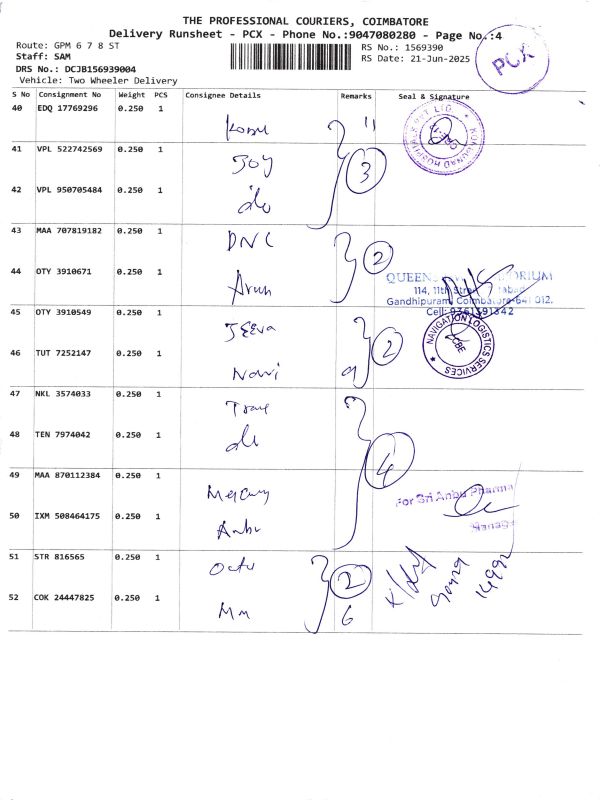 THE PROFESSIONAL COURIERS, COIMBATORE
Delivery Runsheet - PCX - Phone No.:9047080280 - Page No.:4
Route: GPM 6 7 8 ST
Staff: SAM
DRS No.: DCJB156939004
Vehicle: Two Wheeler Delivery
RS No.: 1569390
RS Date: 21-Jun-2025
PCX
S No Consignment No Weight PCS Consignee Details Remarks Seal & Signature
40 EDQ 17769296 0.250 1
41 VPL 522742569 0.250 1 Joy
3
42 VPL 950705484 0.250 1 do
43 MAA 707819182 0.250 1 DNC
2
44 OTY 3910671 0.250 1 Arun
QUEEN
114, 11th
Gandhipuram, Coimbatore-641 012.
Cell: 9361391342
45 OTY 3910549 0.250 1 Jeeva
2
NAVIGATION LOGISTICS SERVICES
CBE
46 TUT 7252147 0.250 1
47 NKL 3574033 0.250 1
48 TEN 7974042 0.250 1 do
4
49 MAA 870112384 0.250 1 Mercury
For Sri Anbu Pharma
50 IXM 508464175 0.250 1 Anbu
51 STR 816565 0.250 1 Octo
2
52 COK 24447825 0.250 1
6